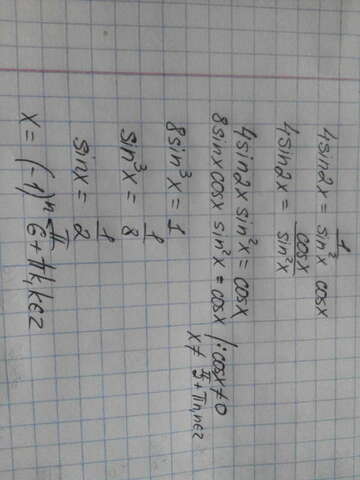 4sin2x = 1/sin²x cosx
4sin2x = cosx/sin²x
4sin2x sin²x = cosx
8sinx cosx sin²x = cosx |: cosx ≠ 0
x ≠ π/2 + πn, n∈z
8sin³x = 1
sin³x = 1/8
sinx = 1/2
x = (-1)ⁿ π/6 + πk, k∈z